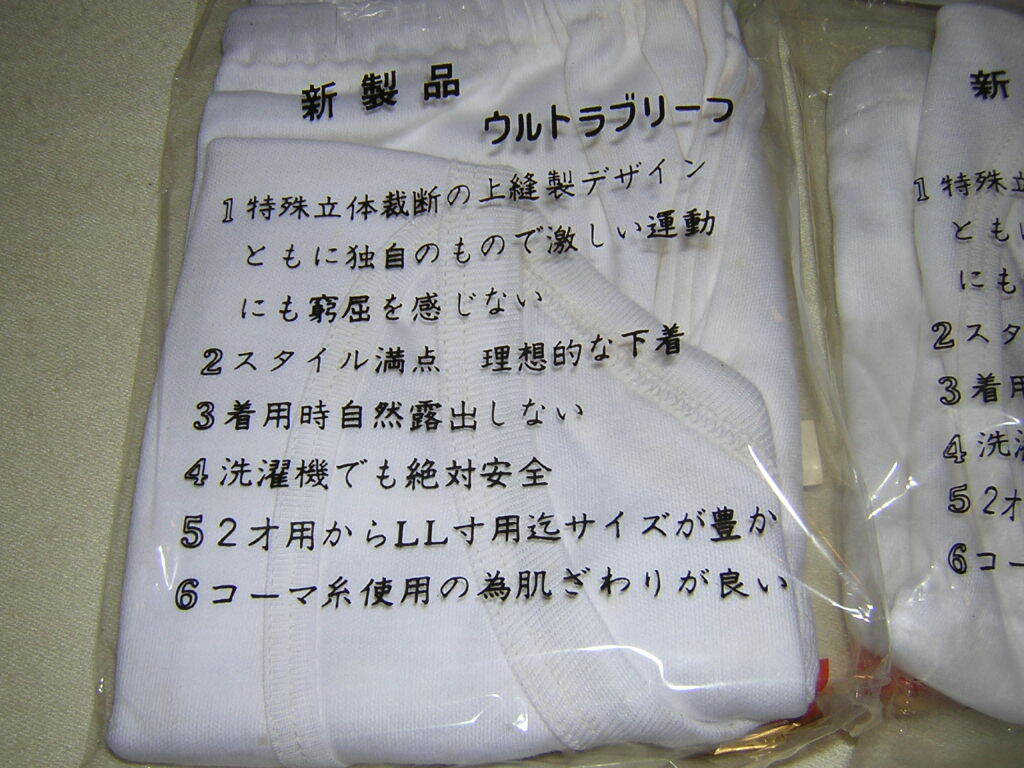 新製品
ウルトラブリーフ
1 特殊立体裁断の上縫製デザイン
ともに独自のもので激しい運動
にも窮屈を感じない
2 スタイル満点 理想的な下着
3 着用時自然露出しない
4 洗濯機でも絶対安全
5 2才用からLL寸用迄サイズが豊か
6 コーマ糸使用の為肌ざわりが良い
新
1 特殊立
ともに
にも
2 スタ
3 着用
4 洗濯
5 2才
6 コー